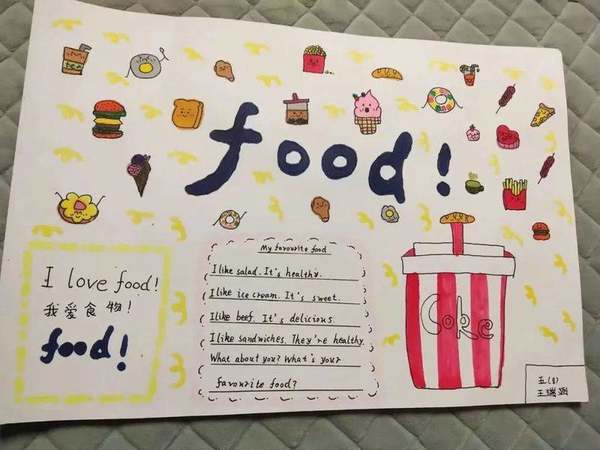 food!
I love food!
我爱食物!
food!
My favourite food
I like salad. It's healthy.
I like ice cream. It's sweet.
I like beef. It's delicious.
I like sandwiches. They're healthy.
What about you? What's your
favourite food?
Coke
王瑞涵